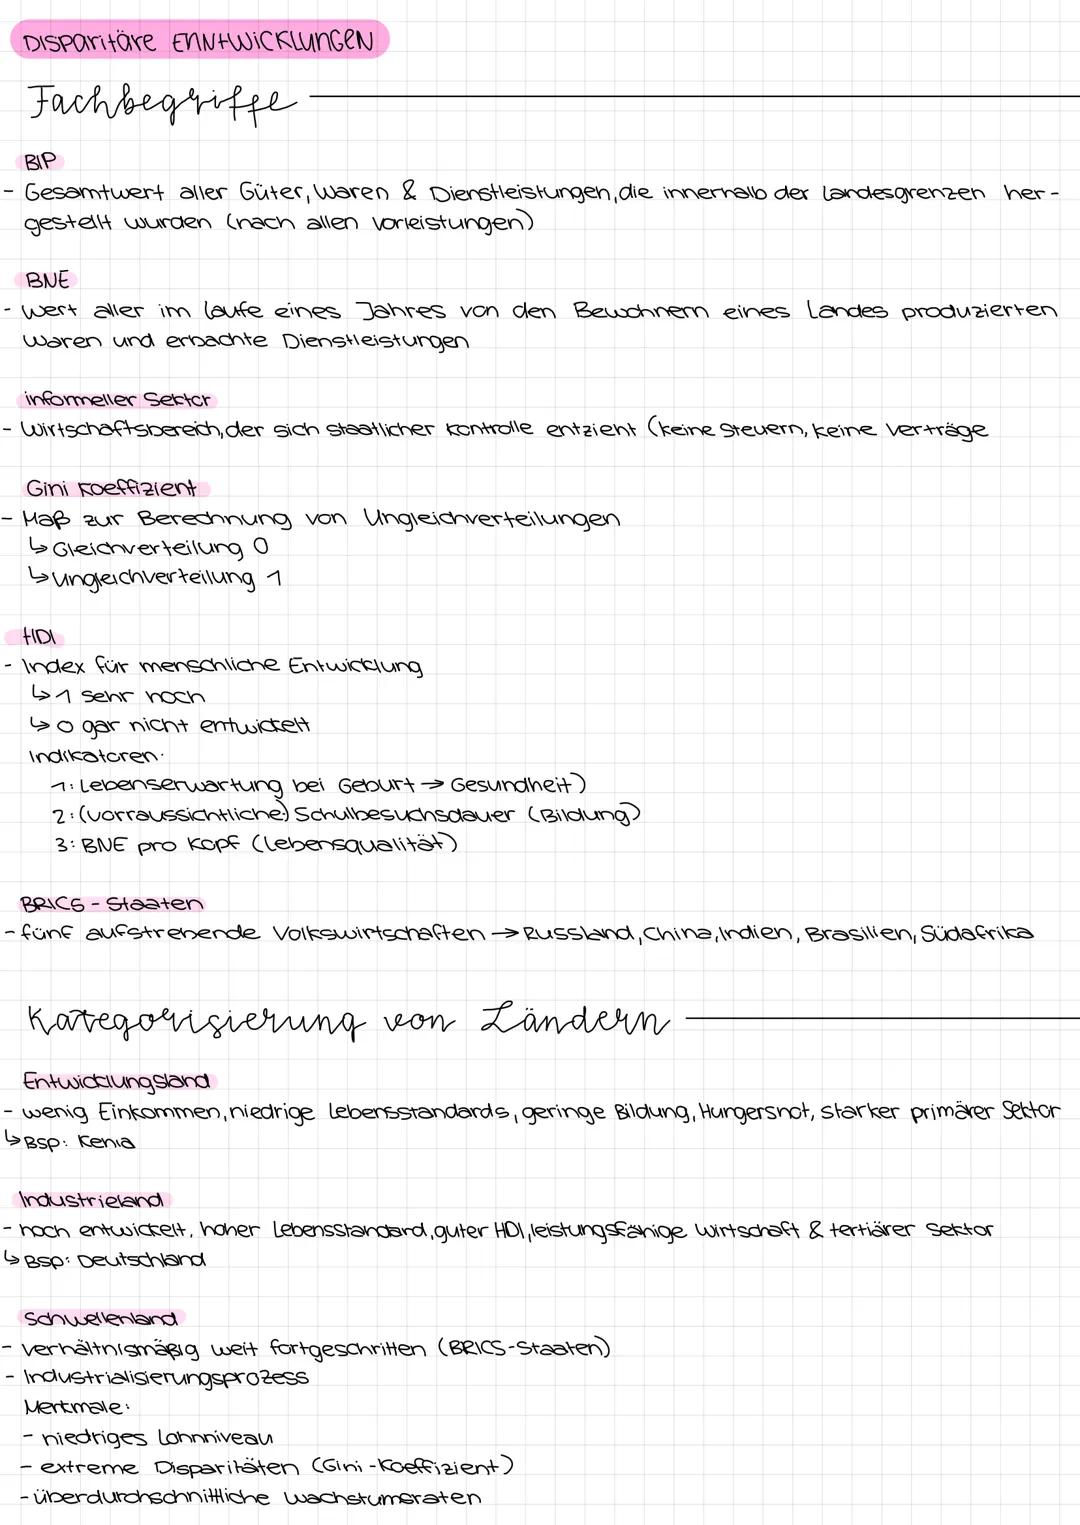 Disparitäre Enntwicklungen
Fachbegriffe
BIP
- Gesamtwert aller Güter, Waren & Dienstleistungen, die innerhalb der Landesgrenzen her-
gestellt wurden (nach allen Vorleistungen)
BNE
- Wert aller im Laufe eines Jahres von den Bewohnern eines Landes produzierten
Waren und erbachte Dienstleistungen
informeller Sektor
- Wirtschaftsbereich, der sich staatlicher Kontrolle entzieht (keine Steuern, keine Verträge
Gini Koeffizient
- Maß zur Berechnung von Ungleichverteilungen
↳ Gleichverteilung 0
↳ Ungleichverteilung 1
HDI
- Index für menschliche Entwicklung
↳ 1 sehr hoch
↳ 0 gar nicht entwickelt
Indikatoren:
1: Lebenserwartung bei Geburt → Gesundheit)
2: (vorraussichtliche) Schulbesuchsdauer (Bildung)
3: BNE pro Kopf (Lebensqualität)
BRICS - Staaten
- fünf aufstrebende Volkswirtschaften → Russland, China, Indien, Brasilien, Südafrika
Kategorisierung von Ländern
Entwicklungsland
- wenig Einkommen, niedrige Lebensstandards, geringe Bildung, Hungersnot, starker primärer Sektor
↳ Bsp: Kenia
Industrieland
- hoch entwickelt, hoher Lebensstandard, guter HDI, leistungsfähige Wirtschaft & tertiärer Sektor
↳ Bsp: Deutschland
Schwellenland
- verhältnismäßig weit fortgeschritten (BRICS-Staaten)
- Industrialisierungsprozess
Merkmale:
- niedriges Lohnniveau
- extreme Disparitäten (Gini-Koeffizient)
- überdurchschnittliche Wachstumsraten